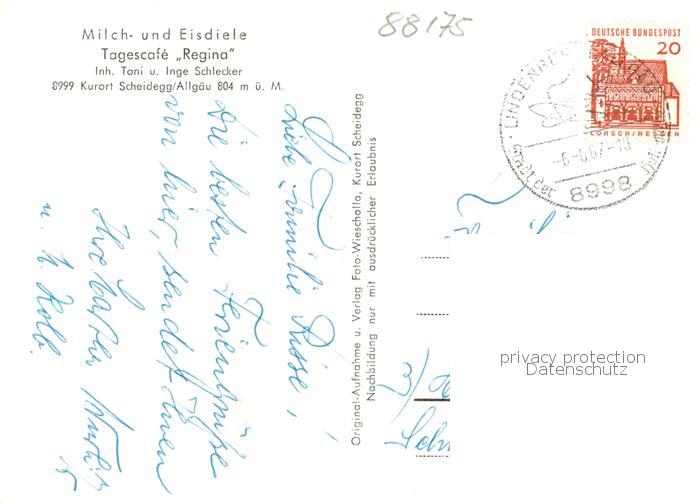 Milch- und Eisdiele
Tagescafé „Regina“
Inh. Toni u. Inge Schlecker
8999 Kurort Scheidegg/Allgäu 804 m ü. M.
88175
DEUTSCHE BUNDESPOST
20
LORSCH/HESSEN
LINDENBERG
8998
Liebe Familie
Die besten Feriengrüße
von hier, sendet Ihnen
Ihre
u. H. Kolb.
Original-Aufnahme u. Verlag Foto-Wieschalla, Kurort Scheidegg
Nachbildung nur mit ausdrücklicher Erlaubnis
privacy protection
Datenschutz